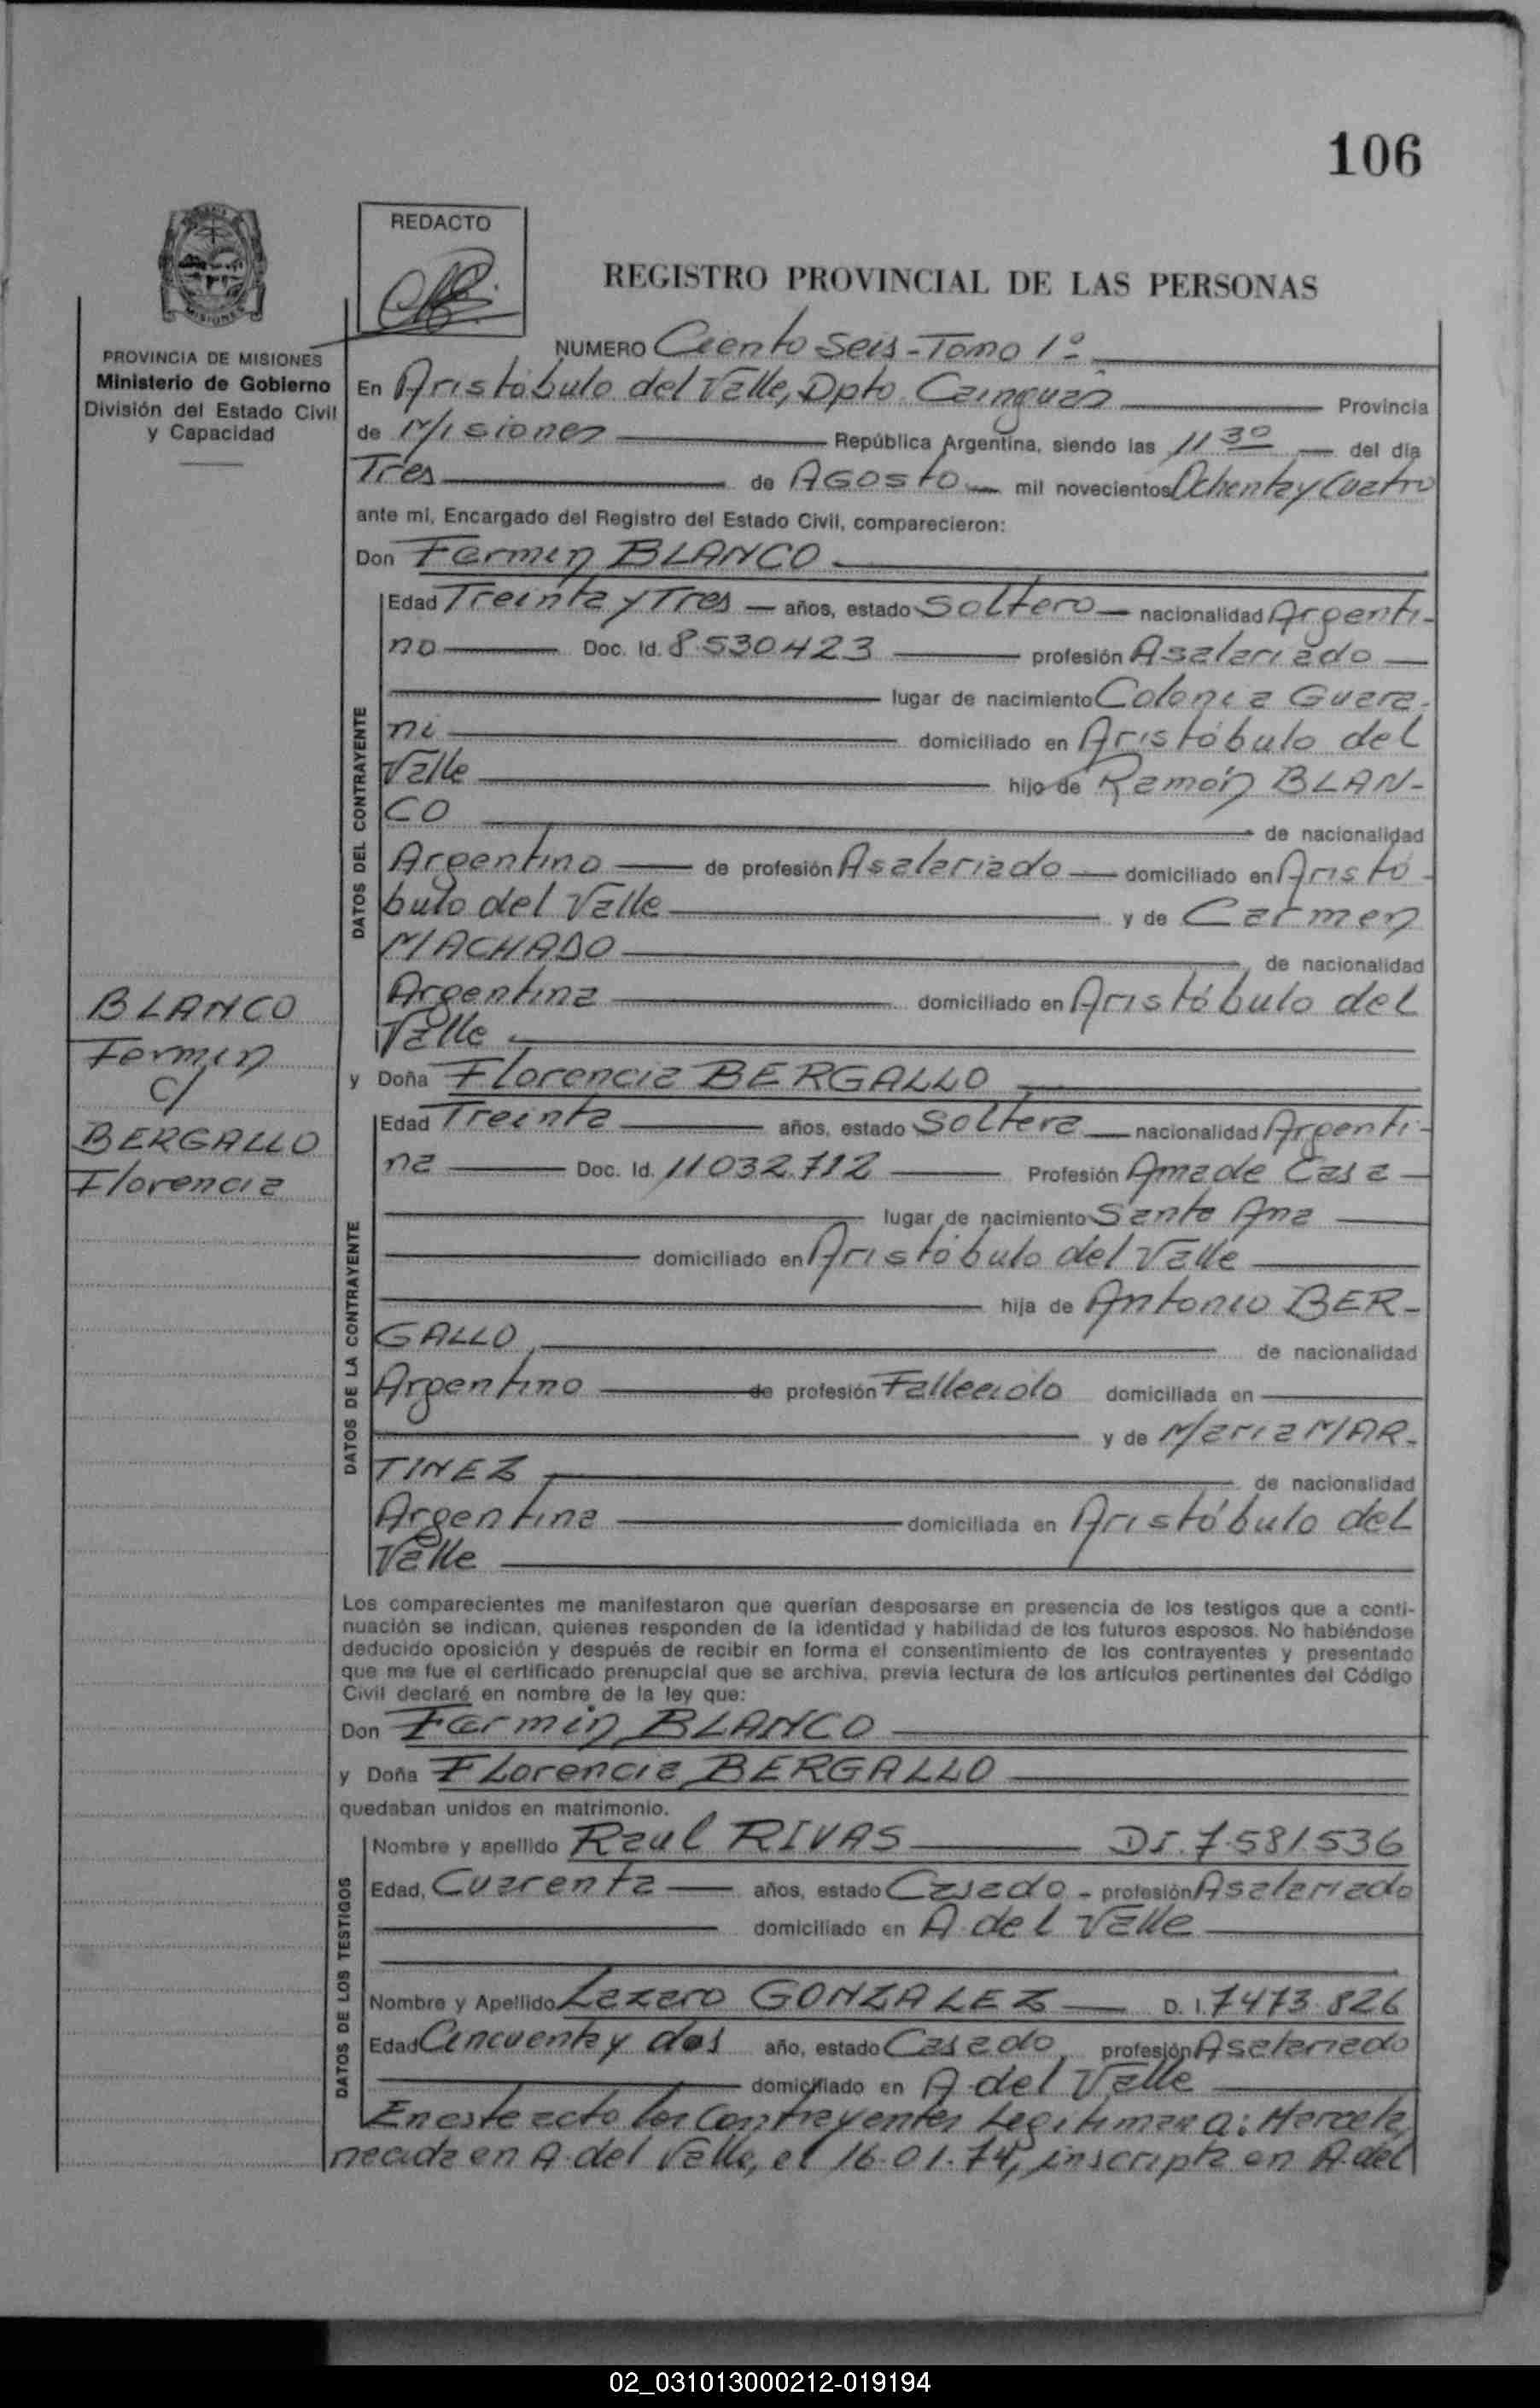 106
REDACTO
REGISTRO PROVINCIAL DE LAS PERSONAS
MISIONES
PROVINCIA DE MISIONES
Ministerio de Gobierno
División del Estado Civil
y Capacidad
NUMERO Ciento Seis - Tomo 1º
En Aristóbulo del Valle, Dpto Cainguás Provincia
de Misiones República Argentina, siendo las 11 30 del día
Tres de AGOSTO mil novecientos Ochenta y Cuatro
ante mi, Encargado del Registro del Estado Civil, comparecieron:
Don Fermin BLANCO
DATOS DEL CONTRAYENTE
Edad Treinta y Tres años, estado Soltero nacionalidad Argenti-
no Doc. Id. 8.530.423 profesión Asalariado
lugar de nacimiento Colonia Guara-
ni domiciliado en Aristóbulo del
Valle hijo de Ramón BLAN-
CO de nacionalidad
Argentino de profesión Asalariado domiciliado en Aristó-
bulo del Valle y de Carmen
MACHADO de nacionalidad
Argentina domiciliado en Aristóbulo del
Valle
BLANCO
Fermin
C/
BERGALLO
Florencia
y Doña Florencia BERGALLO
DATOS DE LA CONTRAYENTE
Edad Treinta años, estado Soltera nacionalidad Argenti-
na Doc. Id. 11.032.712 Profesión Ama de Casa
lugar de nacimiento Santa Ana
domiciliado en Aristóbulo del Valle
hija de Antonio BER-
GALLO de nacionalidad
Argentino de profesión Fallecido domiciliada en
y de Maria MAR-
TINEZ de nacionalidad
Argentina domiciliada en Aristóbulo del
Valle
Los comparecientes me manifestaron que querían desposarse en presencia de los testigos que a conti-
nuación se indican, quienes responden de la identidad y habilidad de los futuros esposos. No habiéndose
deducido oposición y después de recibir en forma el consentimiento de los contrayentes y presentado
que me fue el certificado prenupcial que se archiva, previa lectura de los artículos pertinentes del Código
Civil declaré en nombre de la ley que:
Don Fermin BLANCO
y Doña Florencia BERGALLO
quedaban unidos en matrimonio.
DATOS DE LOS TESTIGOS
Nombre y apellido Raul RIVAS DI. 7.581.536
Edad, Cuarenta años, estado Casado - profesión Asalariado
domiciliado en A. del Valle
Nombre y Apellido Lazaro GONZALEZ D. I. 7473.826
Edad Cincuenta y dos año, estado Casado profesión Asalariado
domiciliado en A. del Valle
En este acto los Contrayentes Legitiman a: Marcela,
nacida en A. del Valle, el 16.01.74, inscripta en A. del
02_031013000212-019194